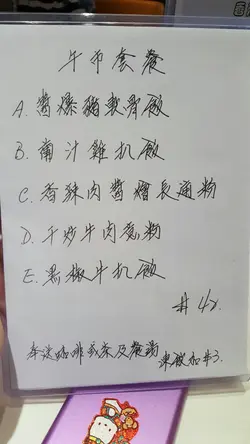 午市套餐
A. 醬爆豬軟骨飯
B. 薑汁雞扒飯
C. 香辣肉醬燴長通粉
D. 干炒牛肉意粉
E. 黑椒牛扒飯
# 42.
奉送咖啡或茶及餐湯
凍飲加#3.